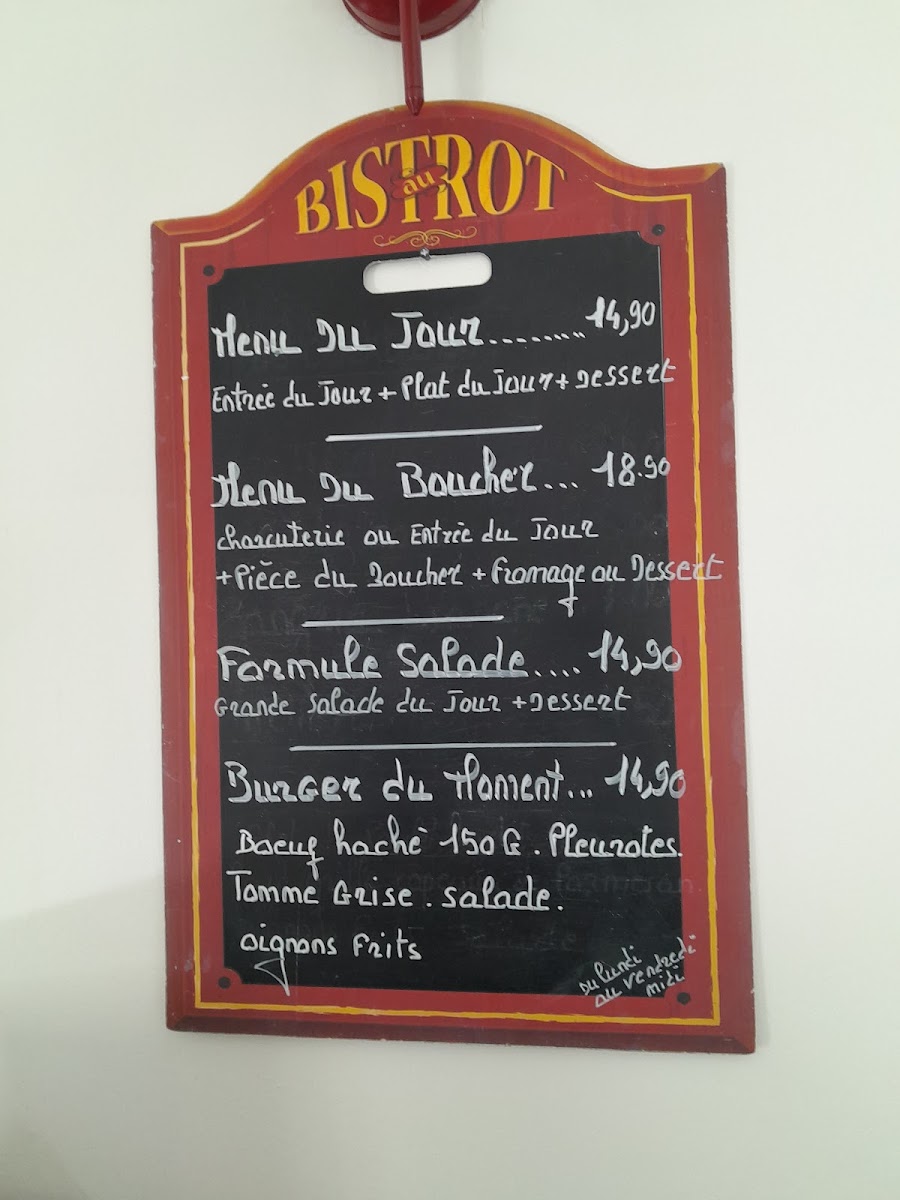 BISTROT
au
Menu Du Jour......... 14,90
Entrée du Jour + Plat du Jour + Dessert
Menu Du Boucher... 18.90
charcuterie ou Entrée du Jour
+ Pièce du Boucher + Fromage ou Dessert
Formule Salade.... 14,90
Grande Salade du Jour + Dessert
Burger du Moment... 14,90
Boeuf haché 150 G. Pleurotes.
Tomme Grise. salade.
oignons Frits
Du lundi
au vendredi
midi